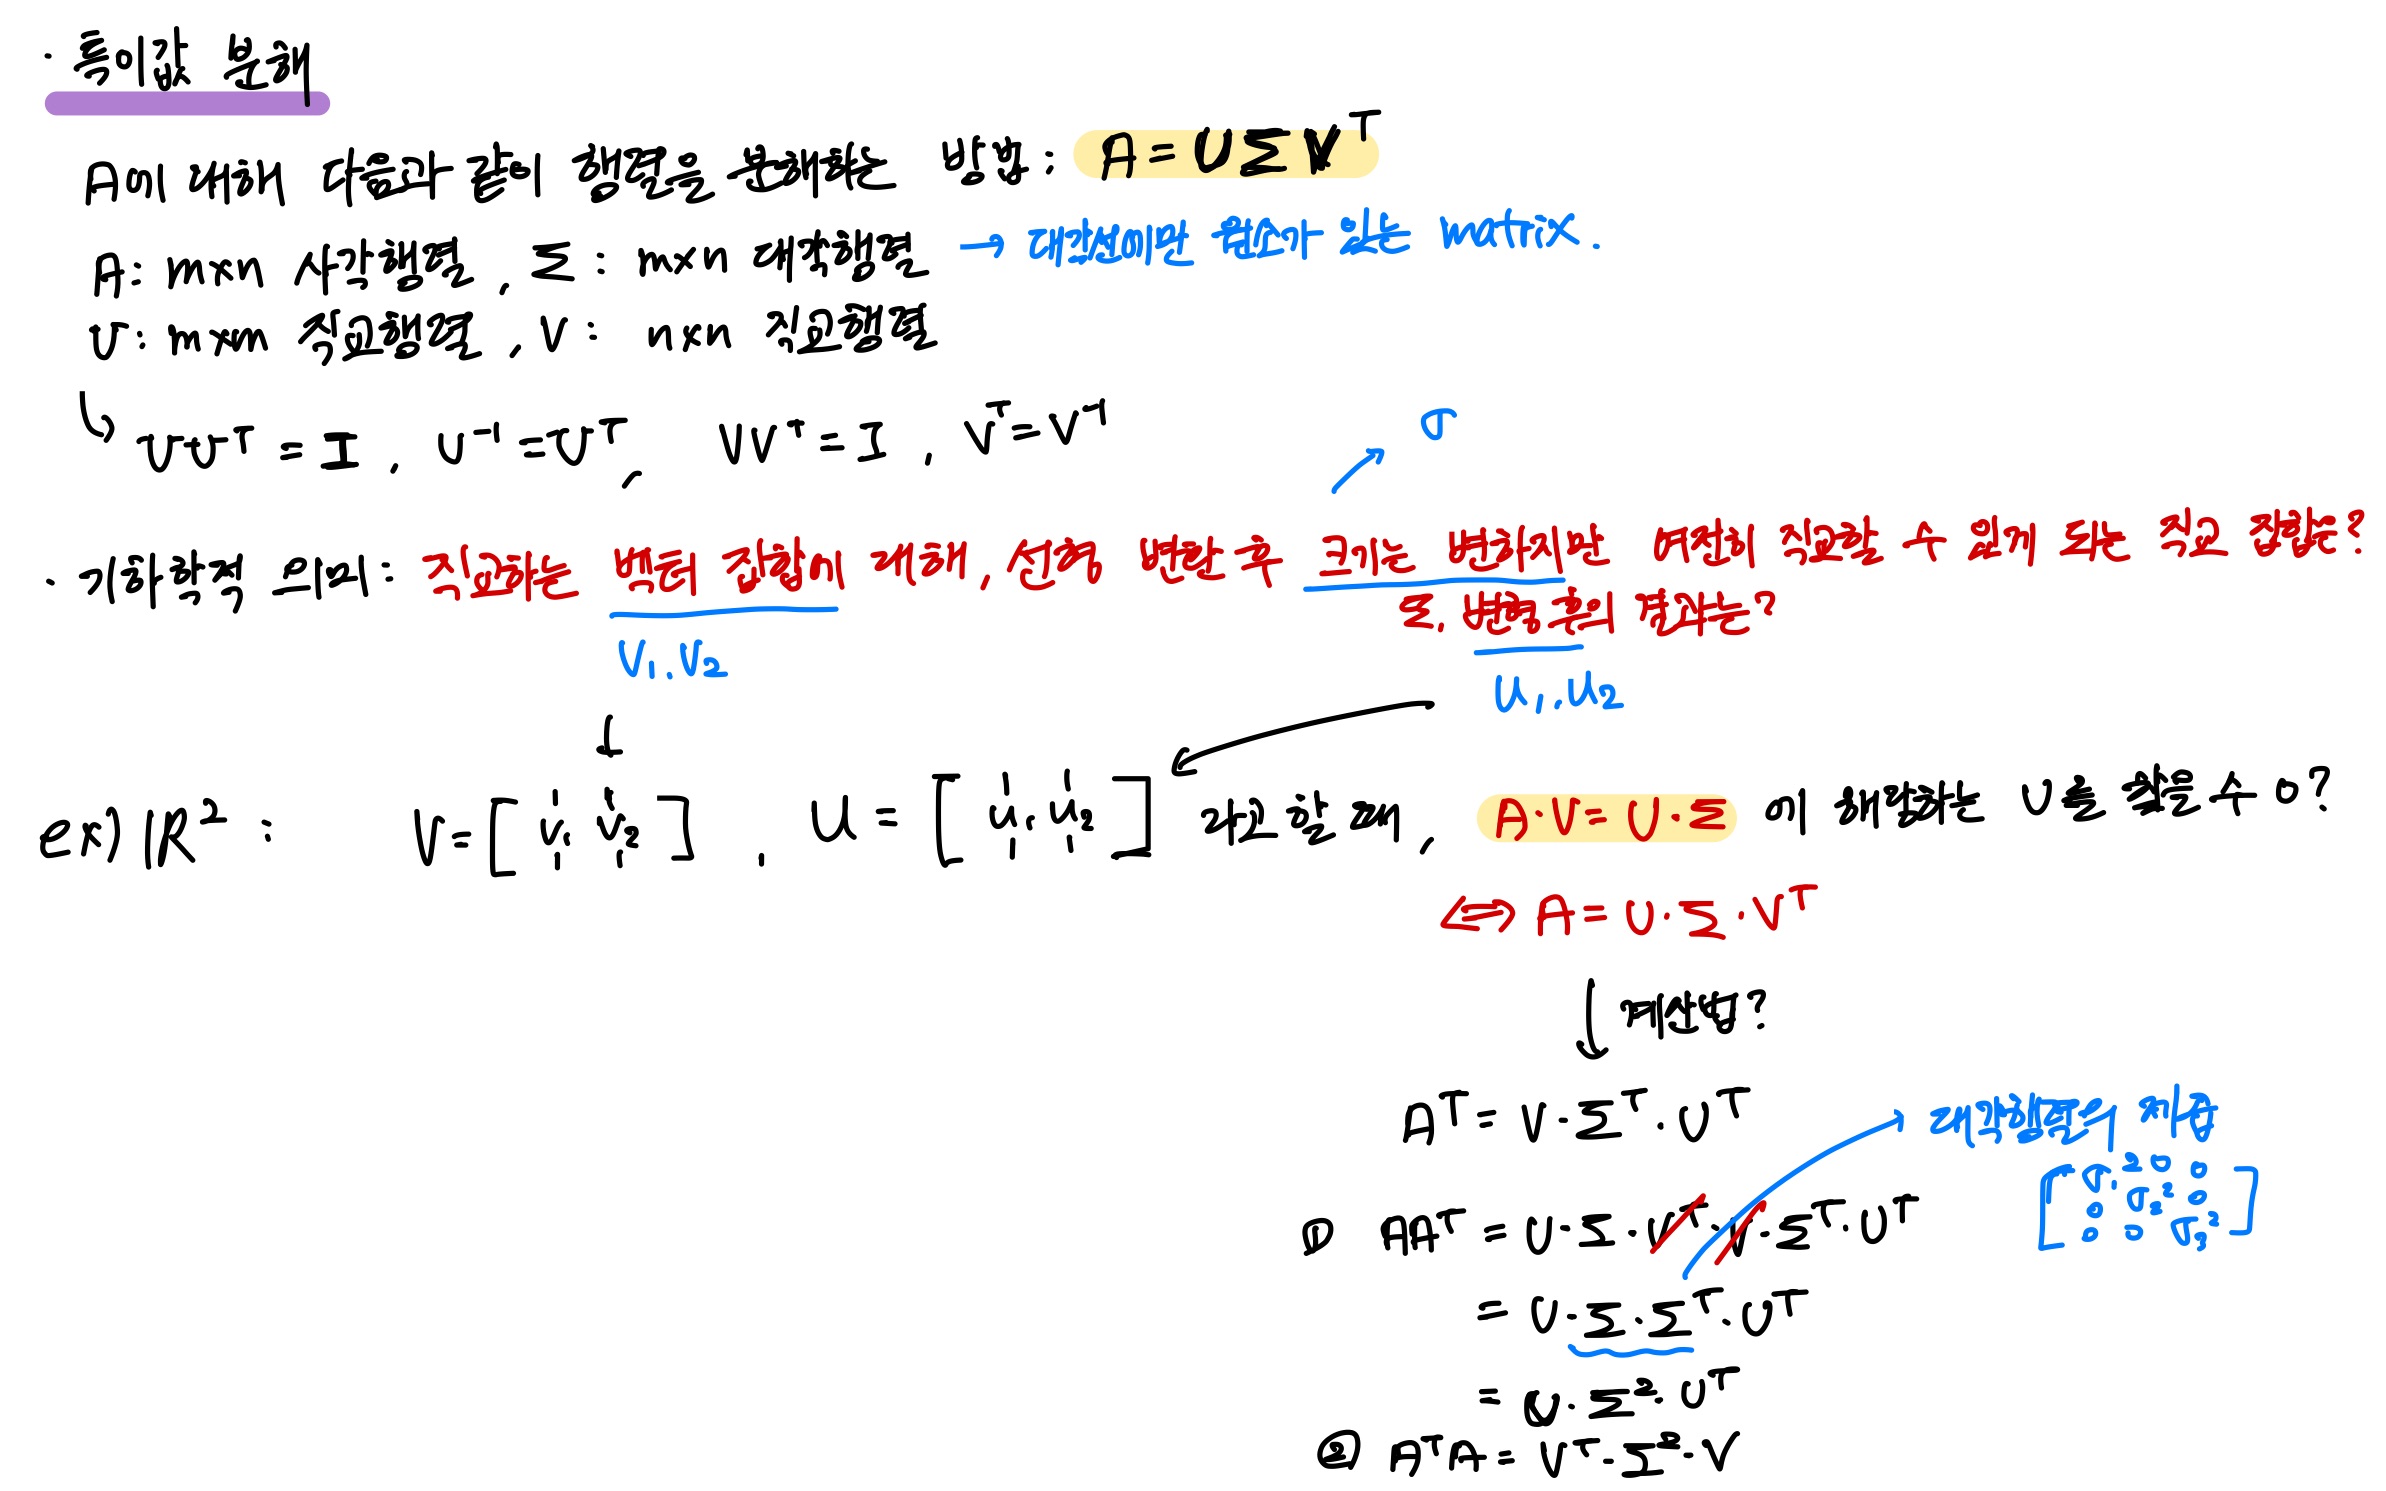 · 특이값 분해
A에 대해 다음과 같이 행렬을 분해하는 방법 : A = UΣV^T
A: m×n 사각행렬, Σ : m×n 대각행렬 → 대각선에만 원소가 있는 matrix.
U: m×m 직교행렬, V : n×n 직교행렬
↳ UU^T = I, U^-1 = U^T, VV^T = I, V^T = V^-1
σ
· 기하학적 의미: 직교하는 벡터 집합에 대해, 선형 변환 후 크기는 변하지만 여전히 직교할 수 있게 되는 직교 집합은?
또, 변형 후의 결과는?
V1, V2
U1, U2
ex) ℝ^2 : V = [ v1 v2 ], U = [ u1, u2 ] 라고 할 때, A·V = U·Σ 에 해당하는 U를 찾을 수 o?
⇔ A = U·Σ·V^T
↓ 계산법?
A^T = V·Σ^T·U^T
대각행렬의 제곱
[ σ1^2 0 0
0 σ2^2 0
0 0 σ3^2 ]
① AA^T = U·Σ·V^T·V·Σ^T·U^T
= U·Σ·Σ^T·U^T
= U·Σ^2·U^T
② A^TA = V^T·Σ^2·V